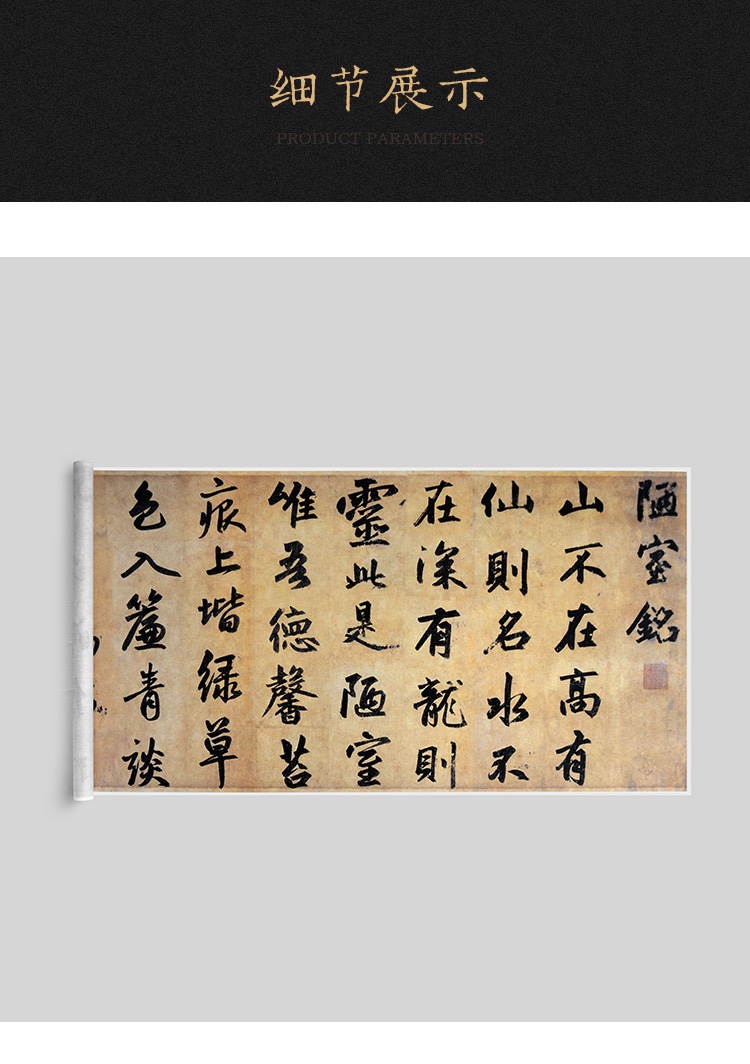 细节展示
PRODUCT PARAMETERS
陋室銘
山不在高有
仙則名水不
在深有龍則
靈此是陋室
唯吾德馨苔
痕上堦绿草
色入簾青談